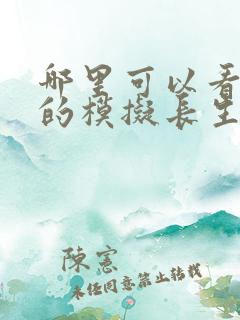 哪里可以看
的模擬長生
陳憲
未经同意禁止转载